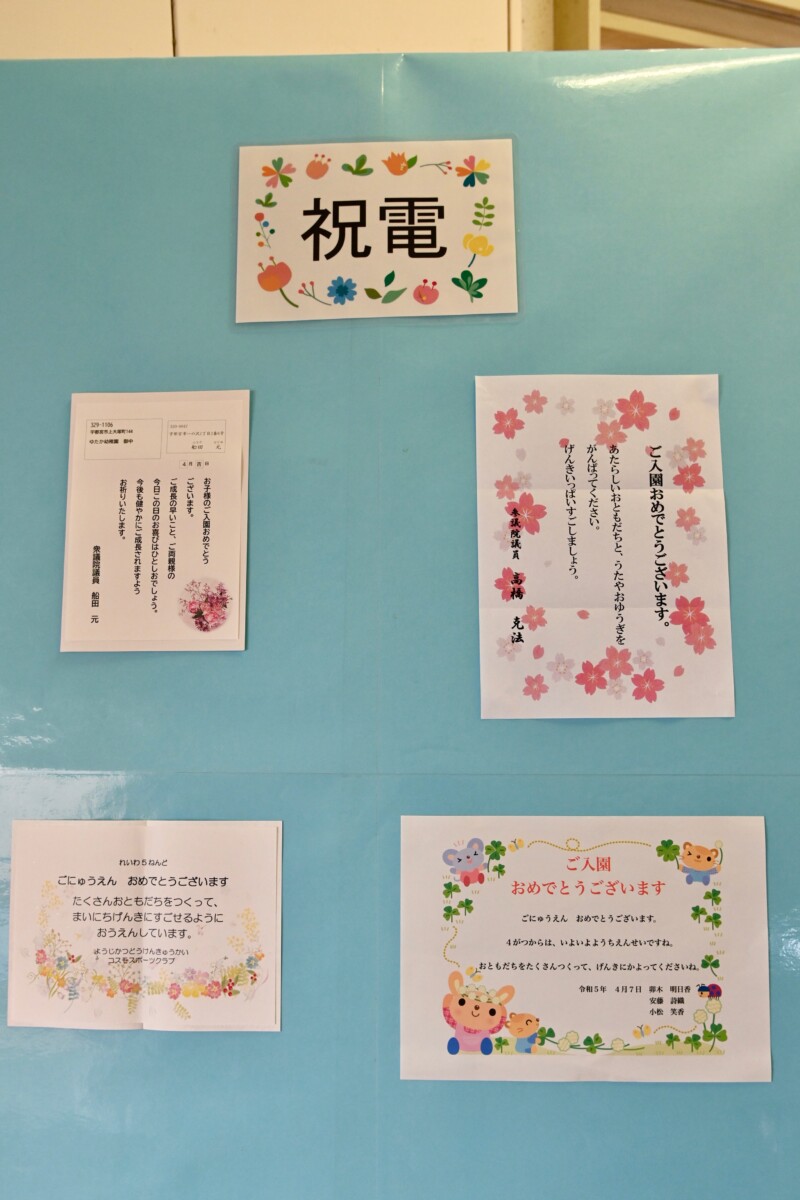 祝電
329-1106
ゆたか幼稚園 御中
4月吉日
お子様のご入園おめでとう
ございます。
ご成長の早いこと、ご両親様の
今日この日のお喜びはひとしおでしょう。
今後も健やかにご成長されますよう
お祈りいたします。
衆議院議員 船田 元
ご入園おめでとうございます。
あたらしいおともだちと、うたやおゆうぎを
がんばってください。
げんきいっぱいすごしましょう。
参議院議員 高橋 克法
れいわ5ねんど
ごにゅうえん おめでとうございます
たくさんおともだちをつくって、
まいにちげんきにすごせるように
おうえんしています。
ようじかつどうけんきゅうかい
コスモスポーツクラブ
ご入園
おめでとうございます
ごにゅうえん おめでとうございます。
4がつからは、いよいよようちえんせいですね。
おともだちをたくさんつくって、げんきにかよってくださいね。
令和5年 4月7日 御木 明日香
安藤 詩織
小松 笑香